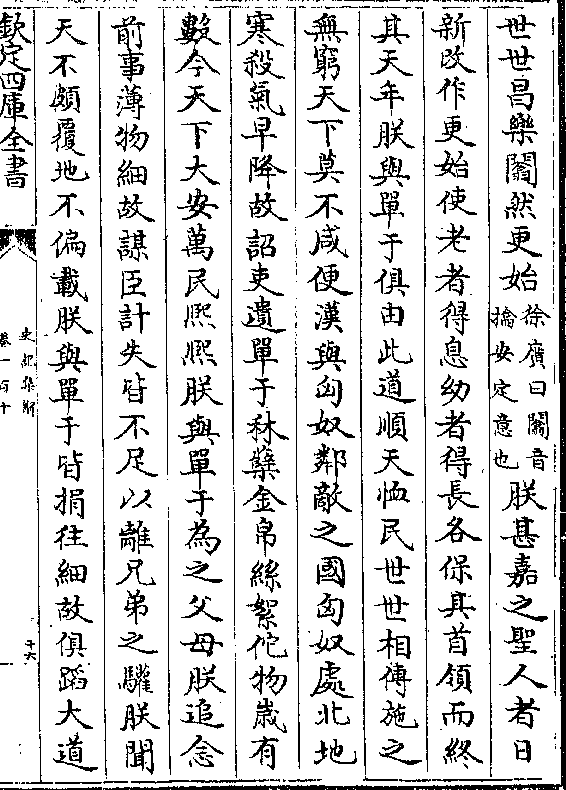 世世昌樂闟然更始徐廣曰闟音搚安定意也朕甚嘉之聖人者日
新改作更始使老者得息幼者得長各保其首領而終
其天年朕與單于俱由此道順天恤民世世相傳施之
無窮天下莫不咸便漢與匈奴鄰敵之國匈奴處北地
寒殺氣早降故詔吏遺單于秫蘖金帛絲絮佗物歲有
數今天下大安萬民熈熈朕與單于為之父母朕追念
前事薄物細故謀臣計失皆不足以離兄弟之驩朕聞
天不頗覆地不偏載朕與單于皆捐往細故俱蹈大道
欽定四庫全書
史記集解
卷一百十
十六